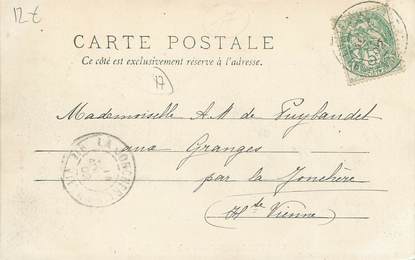 12 €
CARTE POSTALE
Ce côté est exclusivement réservé à l'adresse.
17
Mademoiselle A.M de Puybaudet
aux Granges
par la Jonchère
Hte Vienne